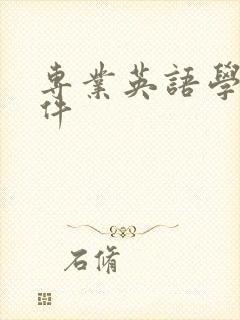 專業英語學
件
石脩